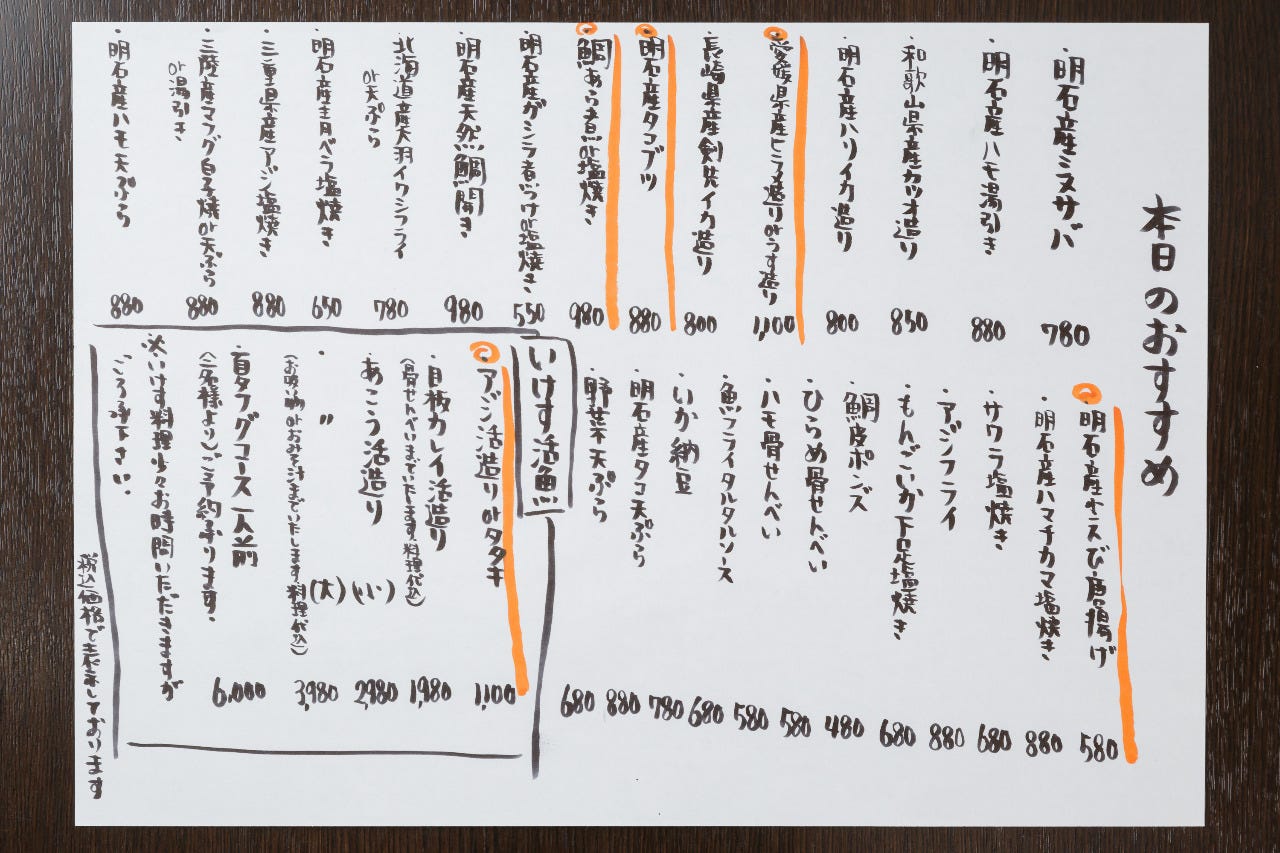 本日のおすすめ
・明石産ミヌサバ 780
・明石産ハモ湯引き 880
・和歌山県産カツオ造り 850
・明石産ハリイカ造り 800
・愛媛県産ヒラメ造りorうす造り 1,100
・長崎県産剣先イカ造り 800
・明石産タコブツ 880
・鯛あら煮or塩焼き 980
・明石産ガシラ煮つけor塩焼き 550
・明石産天然鯛開き 980
・北海道産大羽イワシフライ
or天ぷら 780
・明石産青ベラ塩焼き 650
・三重県産アジ塩焼き 880
・三陸産マフグ白子焼or天ぷら
or湯引き 880
・明石産ハモ天ぷら 880
・明石産キスび唐揚げ 580
・明石産ハマチカマ塩焼き 880
・サワラ塩焼き 680
・アジフライ 880
・もんごいか下足塩焼き 680
・鯛皮ポンズ 480
・ひらめ骨せんべい 580
・ハモ骨せんべい 580
・魚フライタルタルソース 680
・いか納豆 780
・明石産タコ天ぷら 880
・野菜天ぷら 680
いけす活魚
・アジ活造りorタタキ 1,100
・目板カレイ活造り
(骨せんべいまでいたします。料理代込) 1,980
・あこう活造り (小) 2,980
・〃 (大) 3,980
(お吸い物orおみそ汁までいたします。料理代込)
・百タフグコース一人前 6,000
(二名様よりご予約承ります。
※いけす料理少々お時間いただきますが
ご了承下さい。
税込価格で表示しております